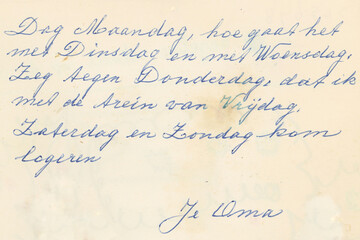 Dag Maandag, hoe gaat het
met Dinsdag en met Woensdag.
Zeg tegen Donderdag, dat ik
met de trein van Vrijdag.
Zaterdag en Zondag kom
logeren
Je Oma